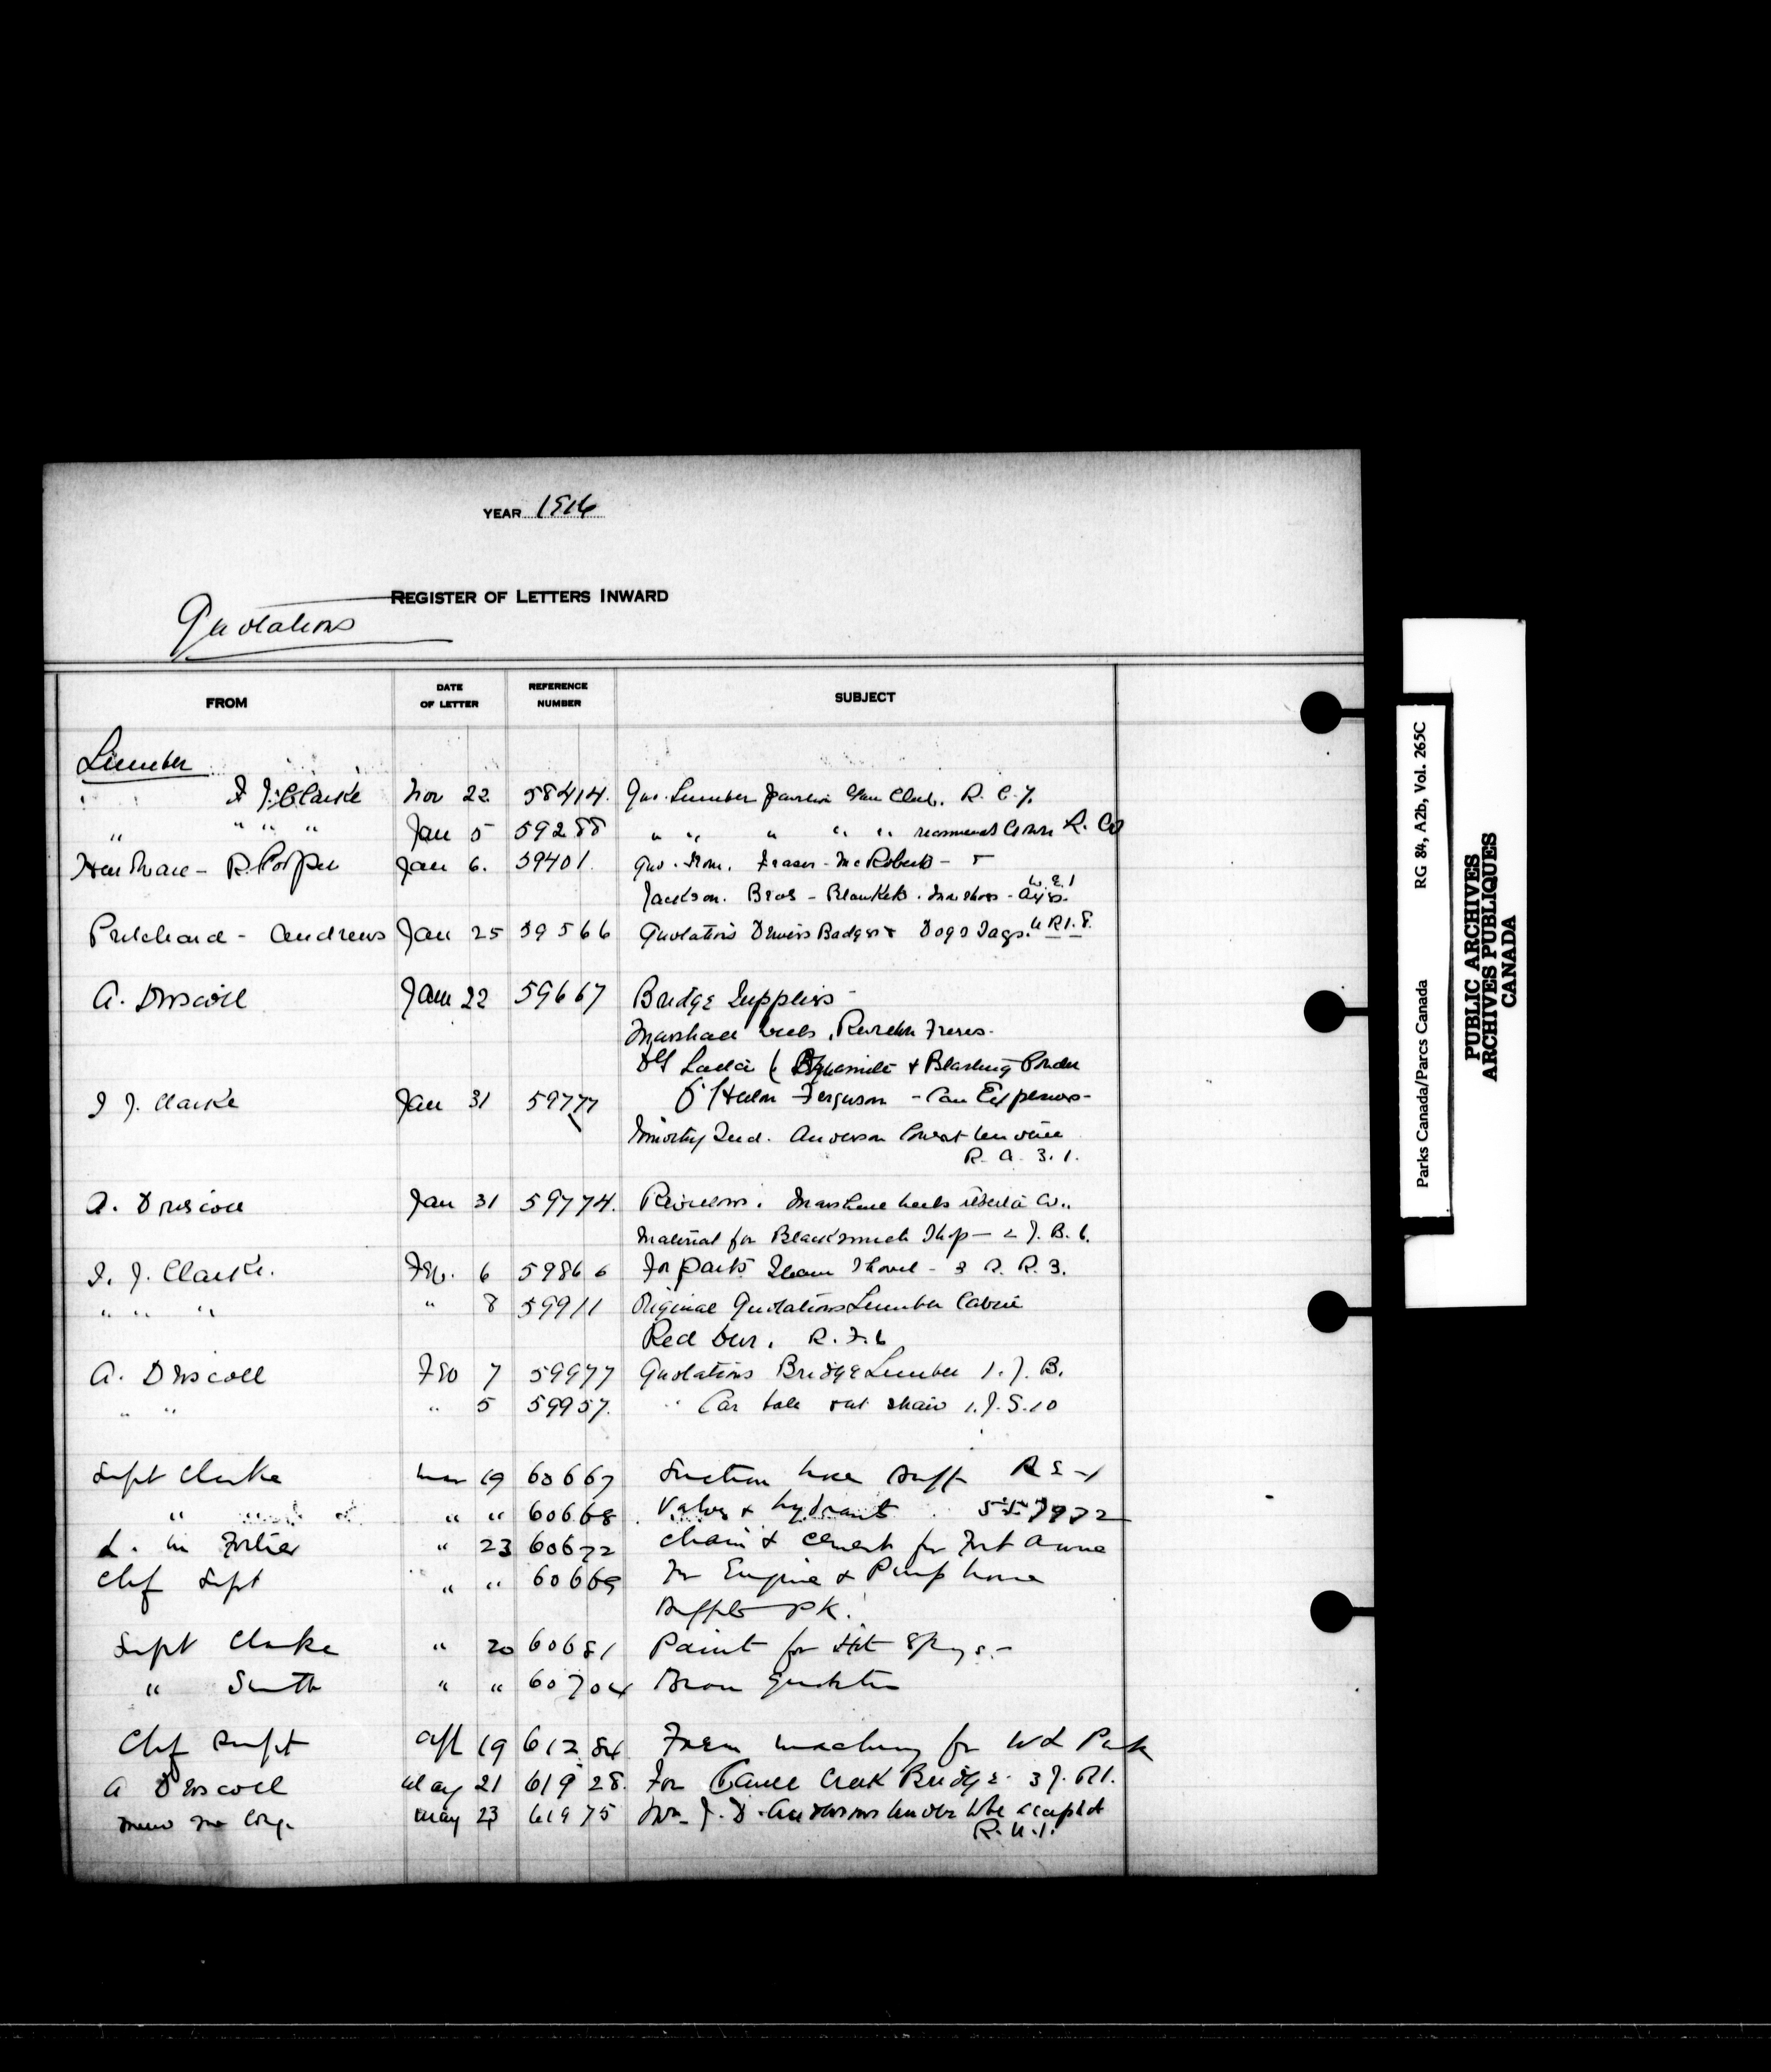 YEAR 1916
REGISTER OF LETTERS INWARD
Quotations
FROM DATE OF LETTER REFERENCE NUMBER SUBJECT
Lumber
J J. Clarke Nov 22 58414. Quo. Lumber Gun Club. R. C. 7.
" " " " Jan 5 59288 " " " " " R. C
Hardware - R. Jan 6. 59401. Quo. from. Fraser - McRoberts -
Jackson. Bros - Blankets.
Pritchard - Andrews Jan 25 59566 Quotations Drivers Badges & Dogs Tags.
A. Driscoll Jan 22 59667 Bridge Supplies -
Marshall Wells. Revillon Freres.
& Blasting Powder
J J. Clarke Jan 31 59777 Ferguson - Can Explosives -
Timothy Seed. Anderson Lowest tender
R. A. 3. 1.
A. Driscoll Jan 31 59774. Revillons. Marshall Wells
Material for Blacksmith Shop - 2 J. B. 6.
J. J. Clarke. Feb. 6 59866 For parts Steam Shovel - 3 R. R. 3.
" " " " 8 59911 Original Quotations Lumber Cabin
Red Deer. R. F. 6
A. Driscoll Feb 7 59977 Quotations Bridge Lumber 1. J. B.
" " " 5 59957. " Car 1. J. S. 10
Supt Clarke Mar 19 60667 Suction hose Buff R E - 1
" " " 60668 Valves & hydrants
L. M Fortier " 23 60672 Chain & Cement for Fort Anne
Chf Supt " " 60669 For Engine & Pump house
Buffalo PK.
Supt Clarke " 20 60681 Paint for Hot Spgs. -
" Smith " " 60704
Chf Supt Apl 19 61284 Farm machinery for W L Park
A Driscoll May 21 61928. For Creek Bridge. 3 J. R1.
May 23 61975 J. D. Andersons tender to be accepted
R. U. 1.
Parks Canada/Parcs Canada RG 84, A2b, Vol. 265C
PUBLIC ARCHIVES
ARCHIVES PUBLIQUES
CANADA